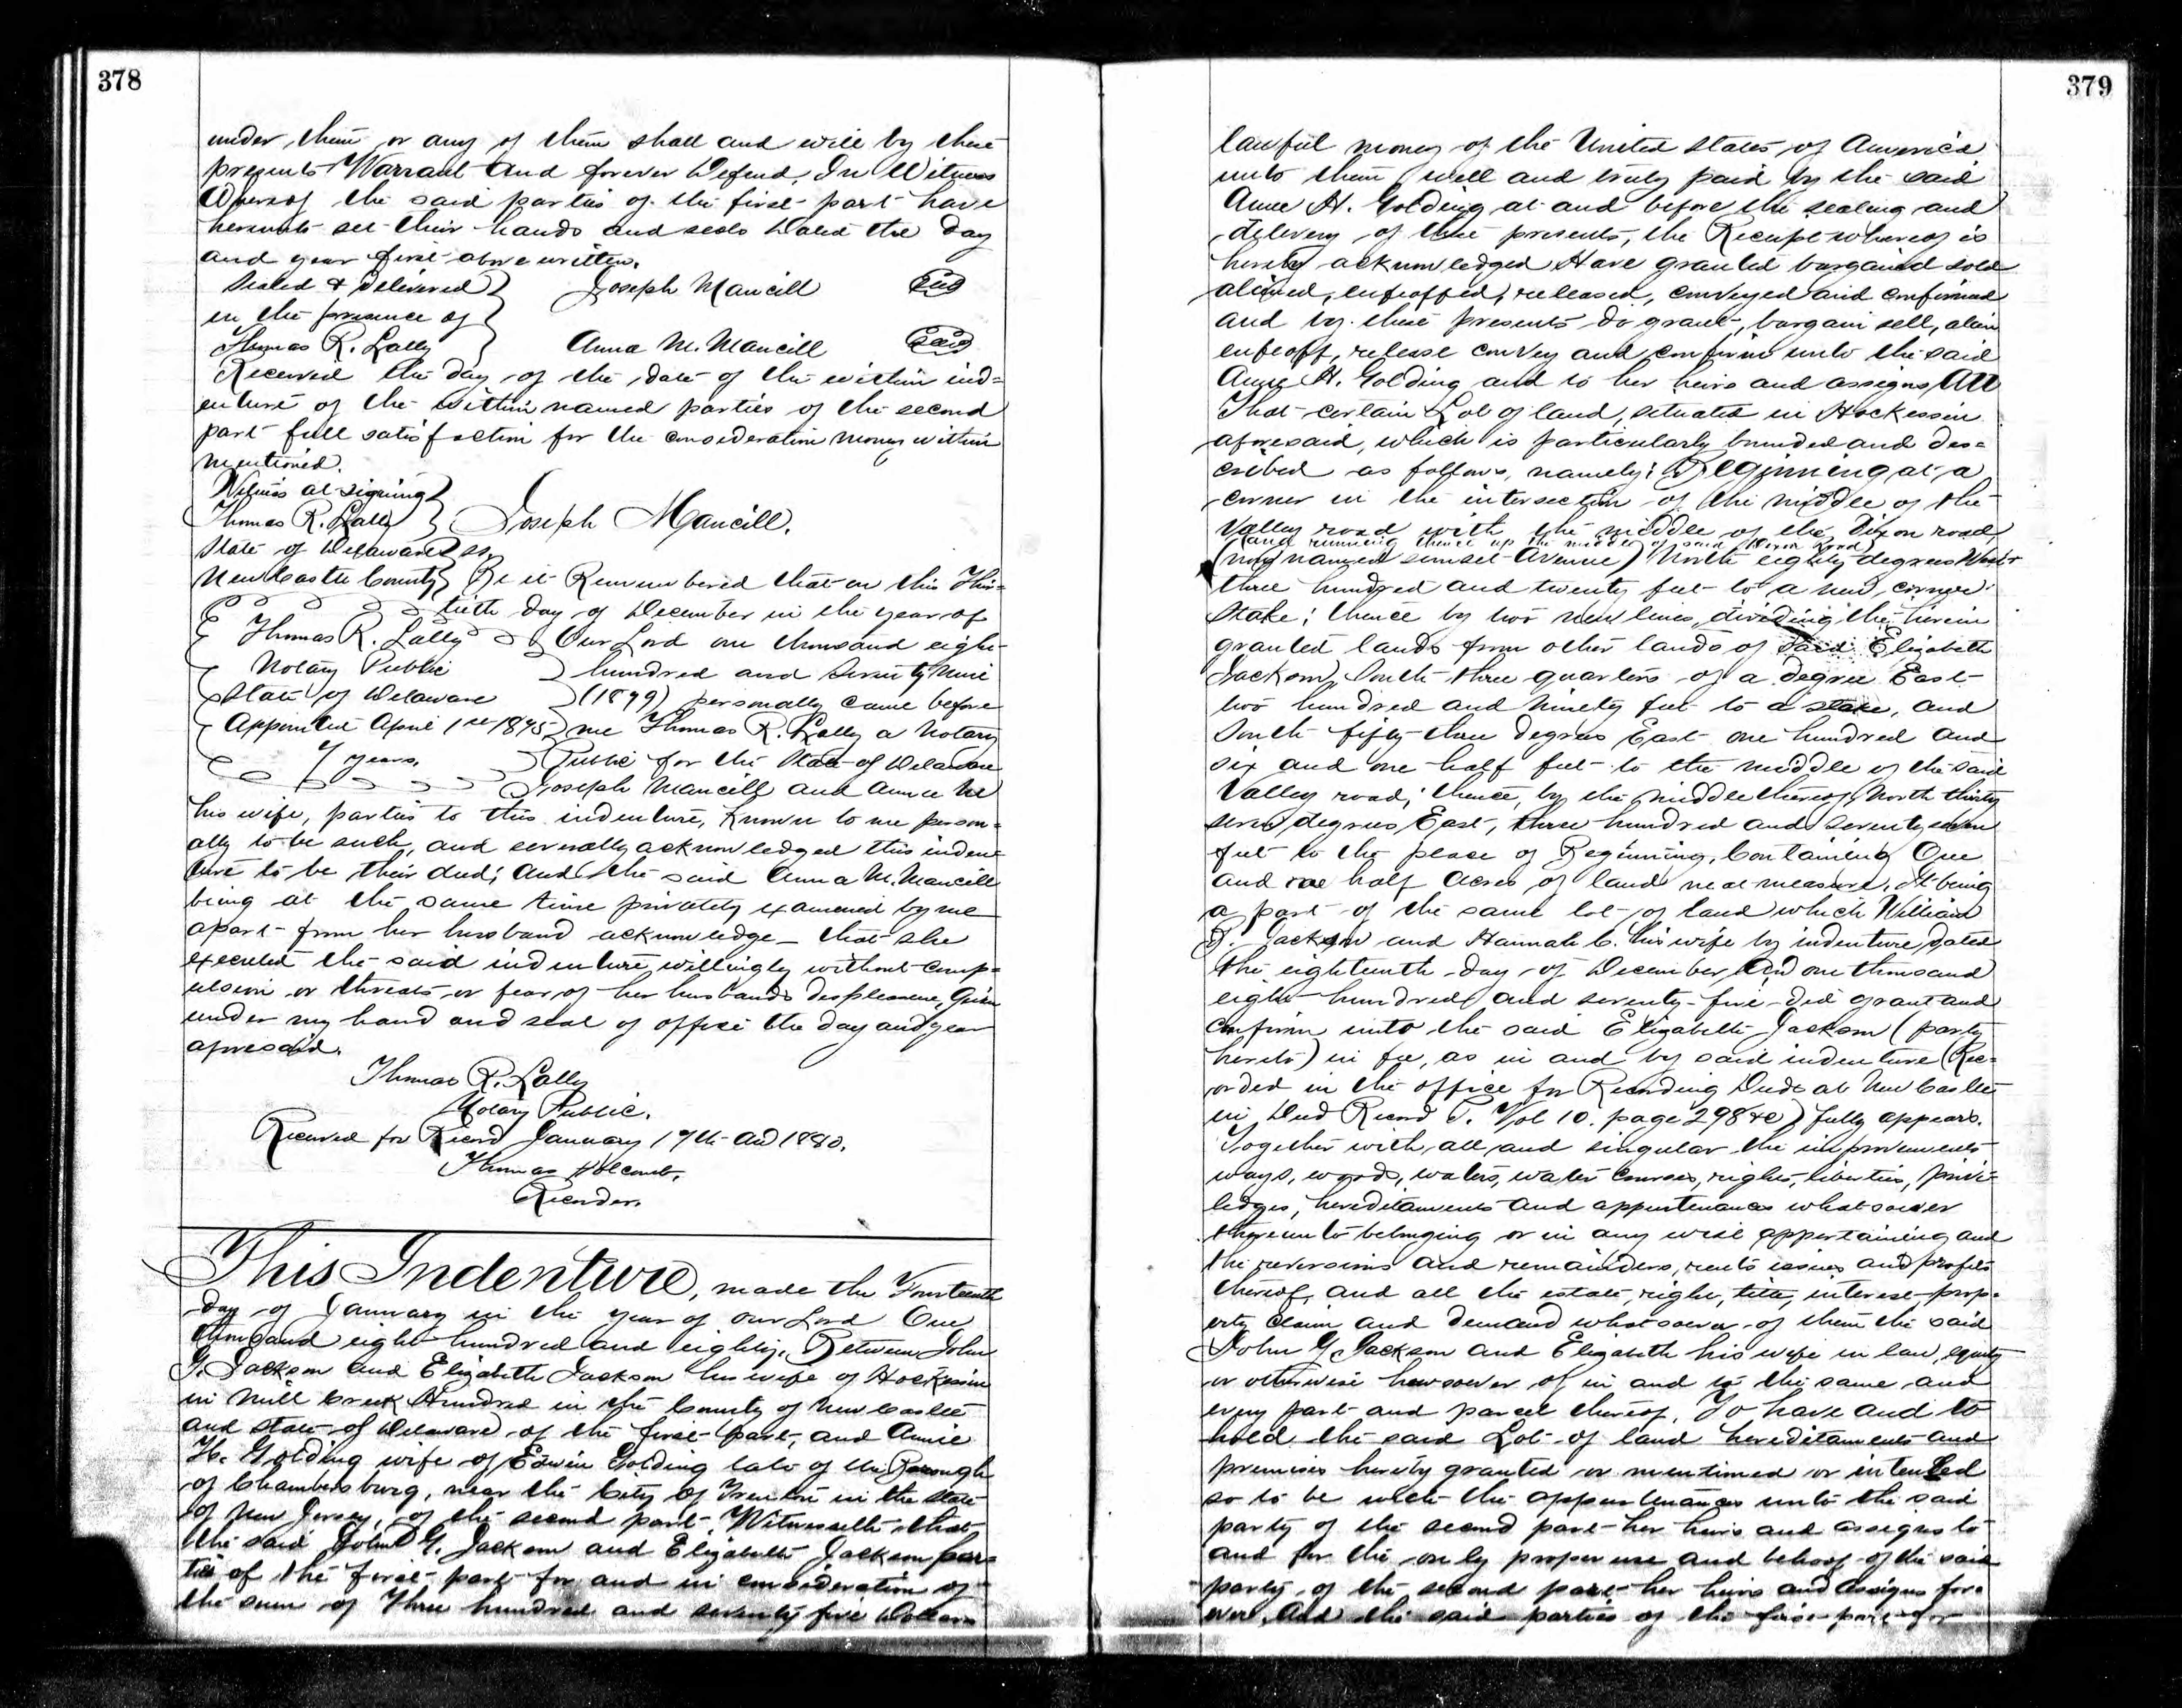 378
under them or any of them shall and will by these
presents Warrant and forever Defend, In Witness
Whereof the said parties of the first part have
hereunto set their hands and seals Dated the Day
and year first above written.
Sealed & Delivered } Joseph Mancill Seal
in the presence of
Thomas R. Lally } Anna M. Mancill Seal
Received the day of the date of the within ind=
enture of the within named parties of the second
part full satisfaction for the consideration money within
mentioned.
Witness at signing }
Thomas R. Lally } Joseph Mancill.
State of Delaware } ss.
New Castle County } Be it Remembered that on this Thir=
tieth day of December in the year of
Thomas R. Lally Our Lord one thousand eight
Notary Public hundred and seventy nine
State of Delaware (1879) personally came before
Appointed April 1st 1875 me Thomas R. Lally a Notary
7 years. Public for the State of Delaware
Joseph Mancill and Anna M
his wife, parties to this indenture, known to me person=
ally to be such, and severally acknowledged this inden=
ture to be their deed; And the said Anna M. Mancill
being at the same time privately examened by me
apart from her husband acknowledge that she
executed the said indenture willingly without comp=
ulsion or threats or fear of her husbands displeasure, Given
under my hand and seal of office the day and year
aforesaid.
Thomas R. Lally
Notary Public.
Received for Record January 17th AD 1880.
Thomas Holcomb,
Recorder.
This Indenture, made the Fourteenth
day of January in the year of our Lord One
thousand eight hundred and eighty, Between John
G. Jackson and Elizabeth Jackson his wife of Hockessin
in Mill Creek Hundred in the County of New Castle
and State of Delaware of the first part, and Annie
H. Golding wife of Edwin Golding late of the Borough
of Chambersburg, near the City of Trenton in the State
of New Jersey, of the second part, Witnesseth that
the said John G. Jackson and Elizabeth Jackson par=
ties of the first part for and in consideration of
the sum of Three hundred and seventy five Dollars
379
lawful money of the United States of America
unto them well and truly paid by the said
Annie H. Golding at and before the sealing and
delivery of these presents, the Receipt whereof is
hereby acknowledged Have granted bargained sold
aliened, enfeoffed, released, conveyed and confirmed
and by these presents do grant, bargain sell, alien
enfeoff, release convey and confirm unto the said
Annie H. Golding and to her heirs and assigns, All
That certain Lot of land, situated in Hockessin
aforesaid, which is particularly bounded and des=
cribed as follows, namely: Beginning at a
corner in the intersection of the middle of the
Valley road with the middle of the Dixon road,
(and running thence up the middle of said Dixon Road)
(now named Sunset Avenue) North eighty degrees West
three hundred and twenty feet to a new corner
stake; thence by two new lines, dividing the herein
granted lands from other lands of said Elizabeth
Jackson, South three quarters of a degree East
two hundred and ninety feet to a stake, and
South fifty three degrees East one hundred and
six and one half feet to the middle of the said
Valley road; thence, by the middle thereof, North thirty
seven degrees East, three hundred and seventy seven
feet to the place of Beginning, Containing One
and one half acres of land neat measure, It being
a part of the same lot of land which William
J. Jackson and Hannah C. his wife by indenture dated
the eighteenth day of December AD one thousand
eight hundred and seventy-five did grant and
confirm unto the said Elizabeth Jackson (party
hereto) in fee, as in and by said indenture (Rec=
orded in the office for Recording Deeds at New Castle
in Deed Record T. Vol 10. page 298 &c) fully appears.
Together with all and singular the improvements
ways, woods, waters, water courses, rights, liberties, privi=
ledges, hereditaments and appurtenances whatsoever
thereunto belonging or in any wise appertaining and
the reversions and remainders, rents issues and profits
thereof, and all the estate, right, title, interest prop=
erty claim and demand whatsoever of them the said
John G. Jackson and Elizabeth his wife in law, equity
or otherwise howsoever of in and to the same and
every part and parcel thereof, To have and to
hold the said Lot of land hereditaments and
premises hereby granted or mentioned or intended
so to be with the appurtenances unto the said
party of the second part her heirs and assigns to
and for the only proper use and behoof of the said
party of the second part her heirs and assigns for=
ever, And the said parties of the first part for